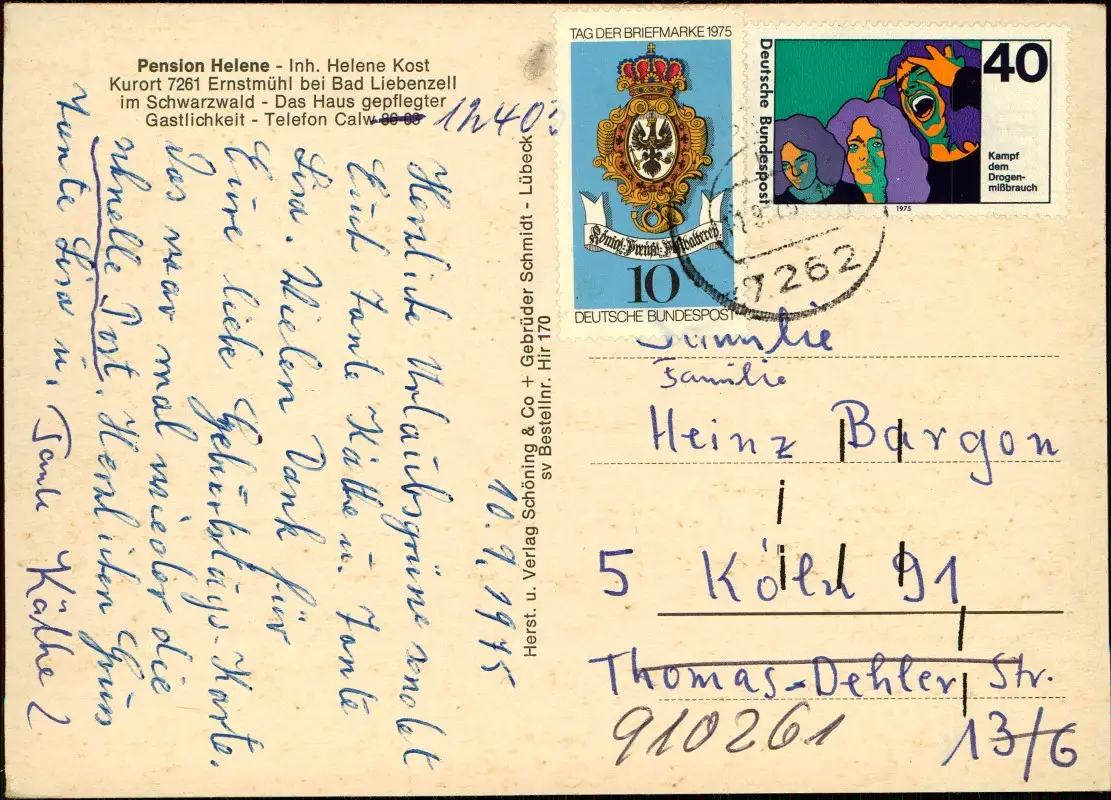 Pension Helene - Inh. Helene Kost
Kurort 7261 Ernstmühl bei Bad Liebenzell
im Schwarzwald - Das Haus gepflegter
Gastlichkeit - Telefon Calw
12403
10.9.1975
Herzliche Urlaubsgrüße sendet
Euch Tante Käthe u. Tante
Lisa. Vielen Dank für
Eure liebe Geburtstags-Karte.
Das war mal wieder die
schnelle Post. Herzlichen Gruß
Tante Lisa u. Tante Käthe
Herst. u. Verlag Schöning & Co + Gebrüder Schmidt - Lübeck
sv Bestellnr. Hir 170
TAG DER BRIEFMARKE 1975
Königl. Preuß. Posthalterey
10
DEUTSCHE BUNDESPOST
Deutsche Bundespost
40
Kampf
dem
Drogen-
mißbrauch
1975
7262
Familie
Familie
Heinz Bargon
5 Köln 91
Thomas-Dehler Str.
13/6
910261